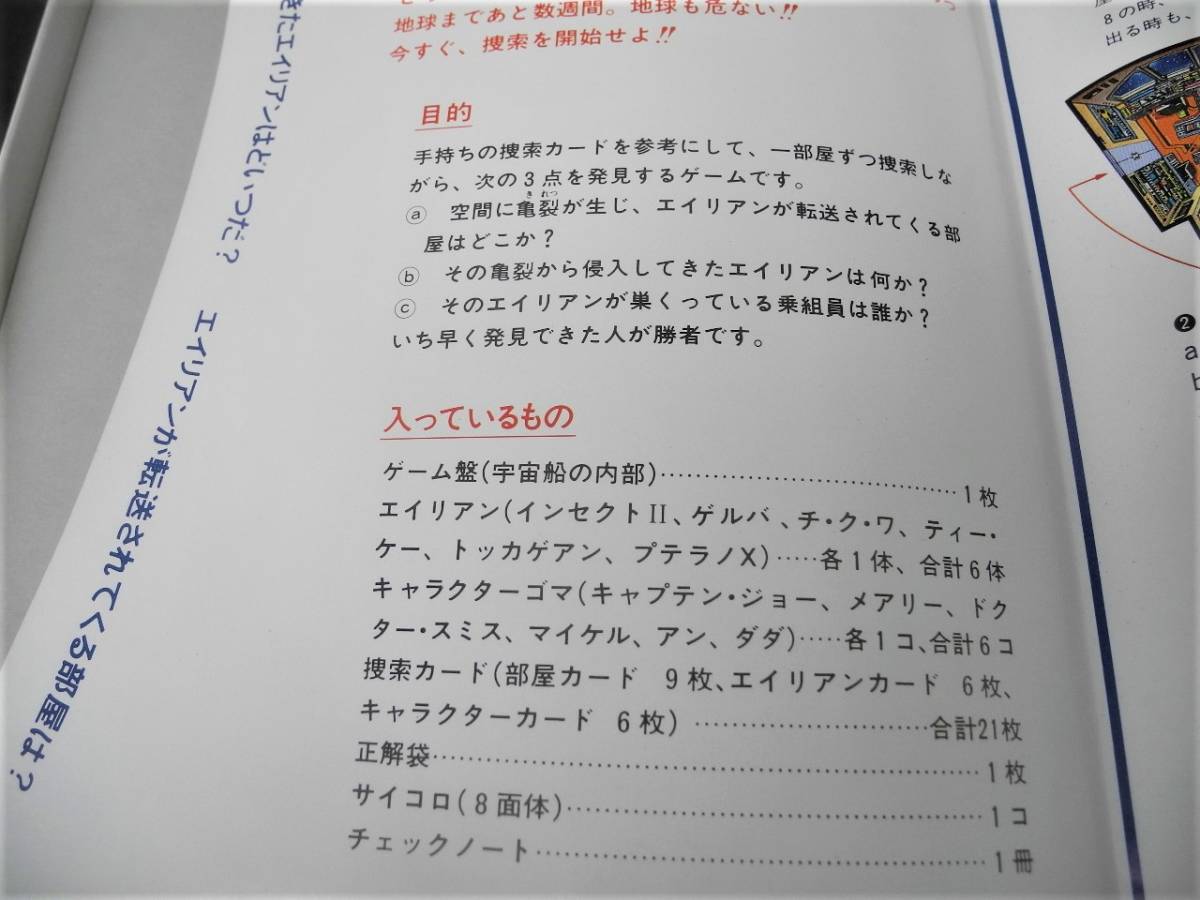 きたエイリアンはどいつだ?
エイリアンが転送されてくる部屋は?
地球まであと数週間。地球も危ない!!
今すぐ、捜索を開始せよ!!
目的
手持ちの捜索カードを参考にして、一部屋ずつ捜索しな
がら、次の3点を発見するゲームです。
ⓐ 空間に亀裂が生じ、エイリアンが転送されてくる部
屋はどこか?
ⓑ その亀裂から侵入してきたエイリアンは何か?
ⓒ そのエイリアンが巣くっている乗組員は誰か?
いち早く発見できた人が勝者です。
入っているもの
ゲーム盤(宇宙船の内部)…………………………1枚
エイリアン(インセクトII、ゲルバ、チ・ク・ワ、ティー・
ケー、トッカゲアン、プテラノX)……各1体、合計6体
キャラクターゴマ(キャプテン・ジョー、メアリー、ドク
ター・スミス、マイケル、アン、ダダ)……各1コ、合計6コ
捜索カード(部屋カード 9枚、エイリアンカード 6枚、
キャラクターカード 6枚) …………………合計21枚
正解袋…………………………………………………1枚
サイコロ(8面体)……………………………………1コ
チェックノート………………………………………1冊
8の時、
出る時も、
❷
a
b